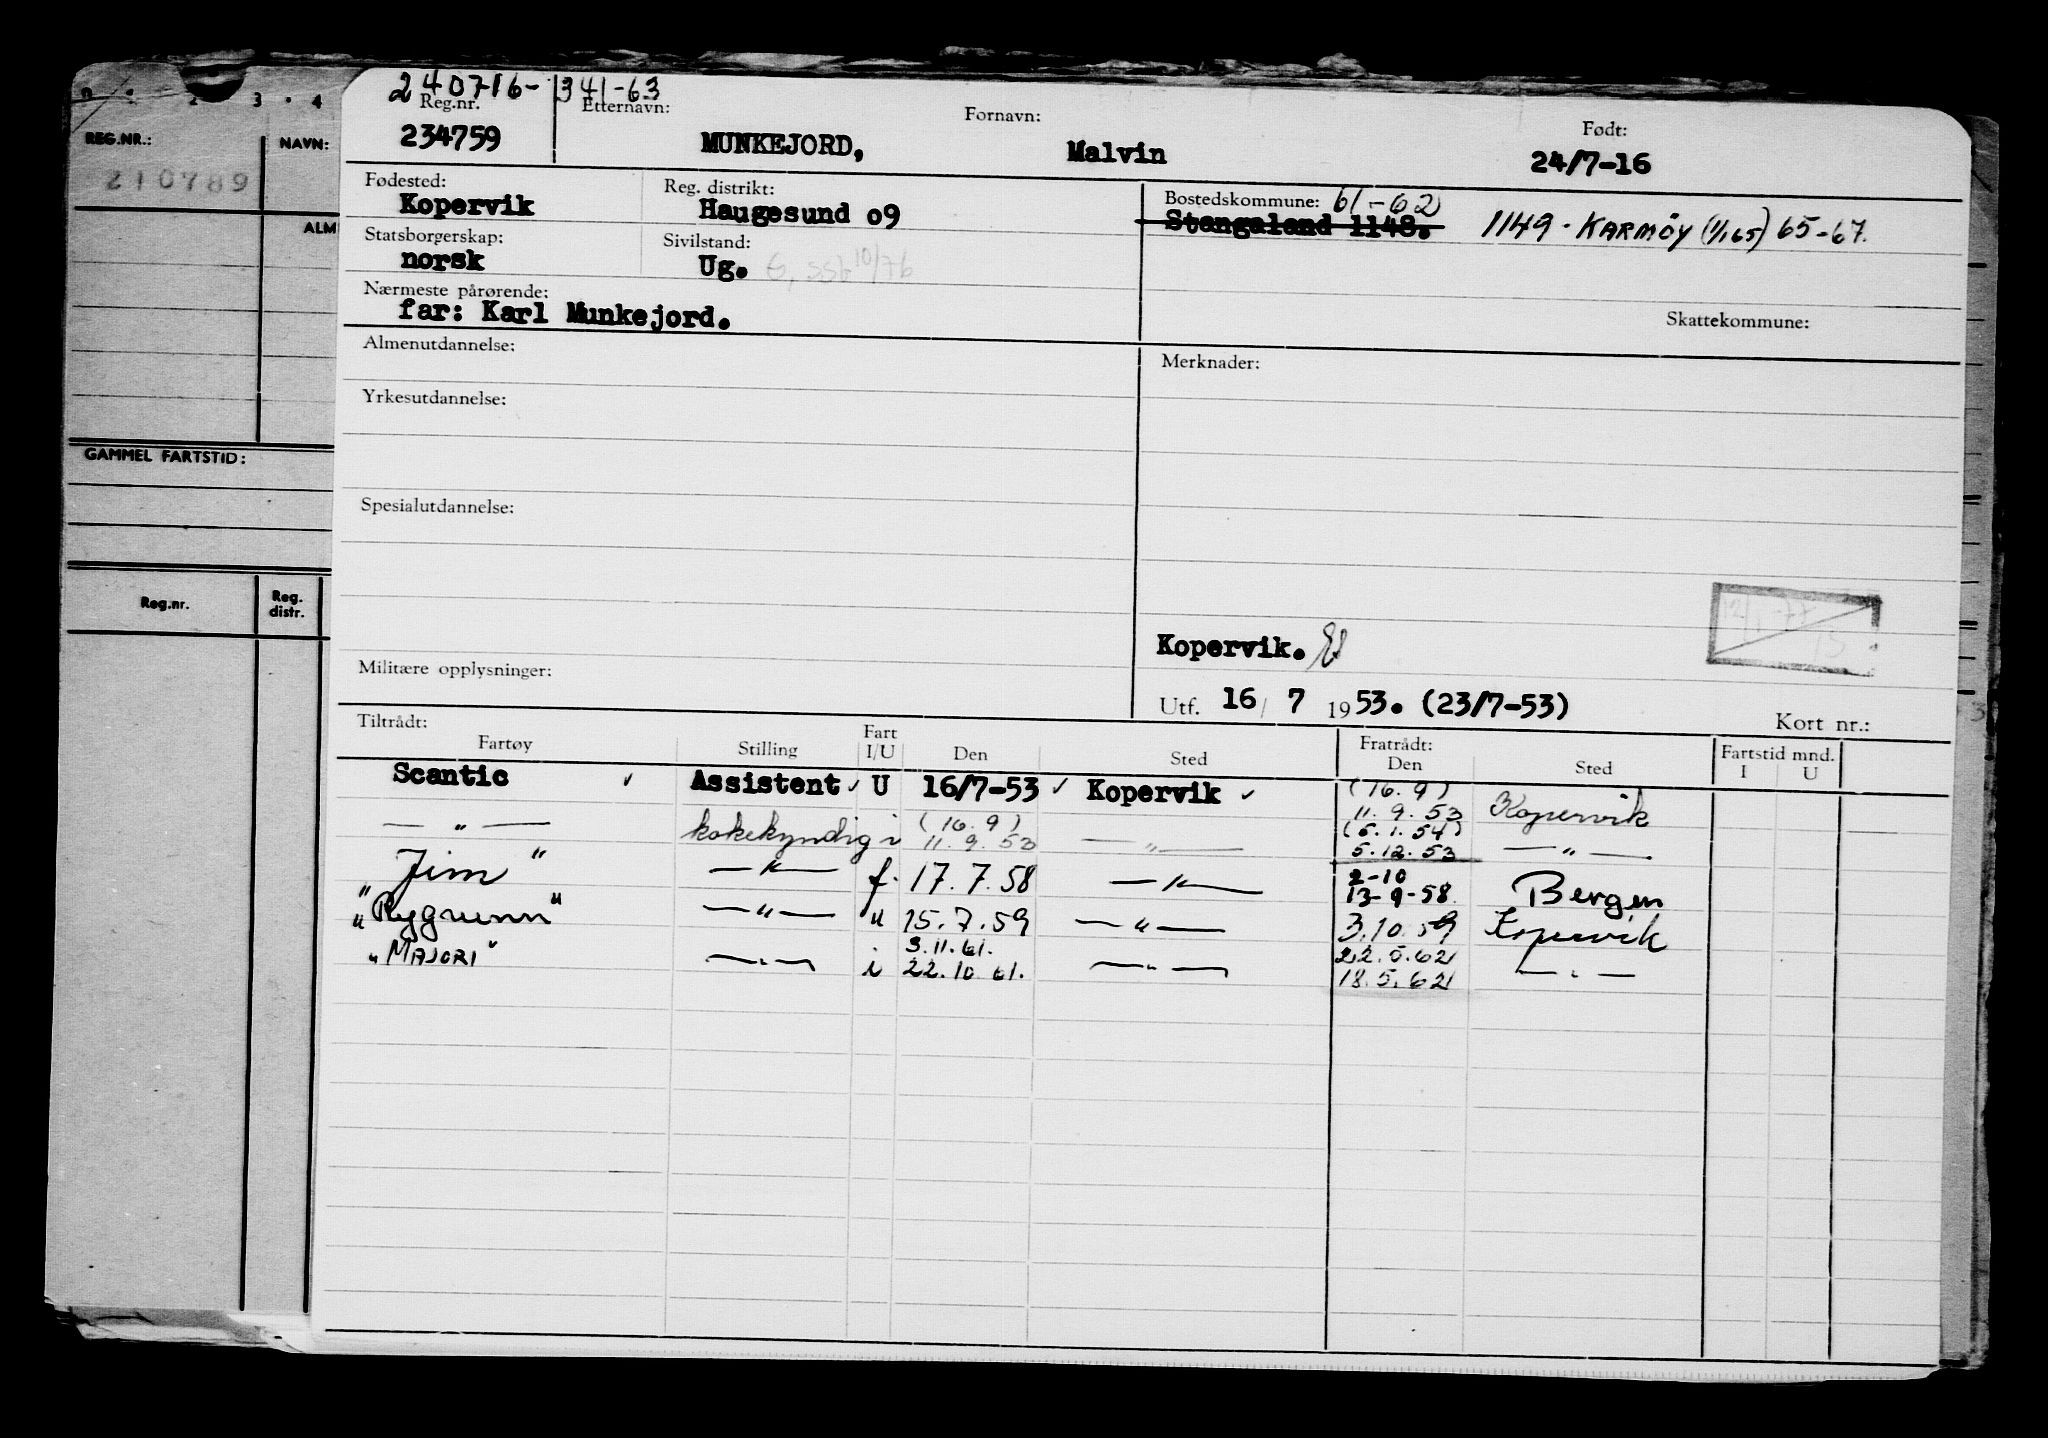 240716-34163
Reg.nr. Etternavn: Fornavn: Født:
234759 MUNKEJORD, Malvin 24/7-16
Fødested: Reg. distrikt: Bostedskommune: 61-62
Kopervik Haugesund o9 Stangaland 1148. 1149 - KARMÖY (1/1 65) 65-67.
Statsborgerskap: Sivilstand:
norsk Ug.
Nærmeste pårørende:
far: Karl Munkejord. Skattekommune:
Almenutdannelse: Merknader:
Yrkesutdannelse:
Spesialutdannelse:
Kopervik.
Militære opplysninger:
Utf. 16/ 7 1953. (23/7-53)
Kort nr.:
Tiltrådt: Fratrådt:
Fartøy Stilling Fart I/U Den Sted Den Sted Fartstid mnd. I U
Scantic ✓ Assistent ✓ U 16/7-53 ✓ Kopervik ✓ (16.9) 11.9.53 Kopervik
— " — kokekyndig i (16.9) 11.9.53 — " — (5.1.54) 5.12.53 — " —
"Jim" — " — f. 17.7.58 — " — 2-10 13-9-58. Bergen
"Rygrunn" — " — " 15.7.59 — " — 3.10.59 Kopervik
"MAJORI" — " — i 3.11.61. 22.10.61. — " — 18.5.62 — " —
REG.NR.: NAVN:
210789
ALM
GAMMEL FARTSTID:
Reg.nr. Reg. distr.